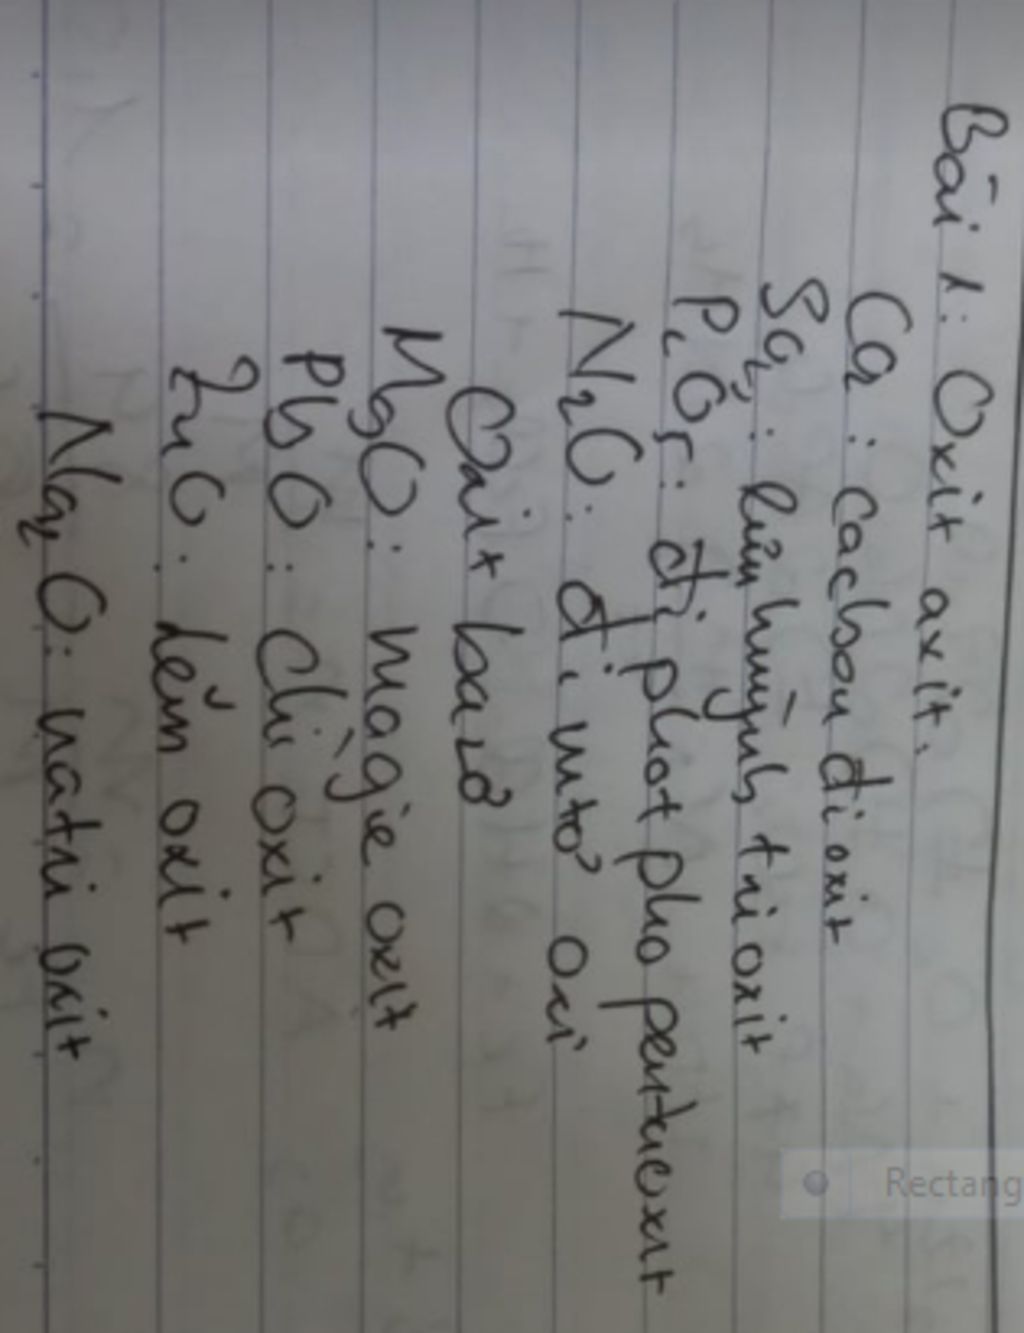 Bài 1: Oxit axit.
CO2: cacbon đi oxit
SO3: lưu huỳnh tri oxit
P2O5: đi phot pho pentaoxit
N2O: đi nitơ oxi
Oxit bazơ
MgO: magie oxit
PbO: chì oxit
ZnO: kẽm oxit
Na2O: natri oxit
Rectang